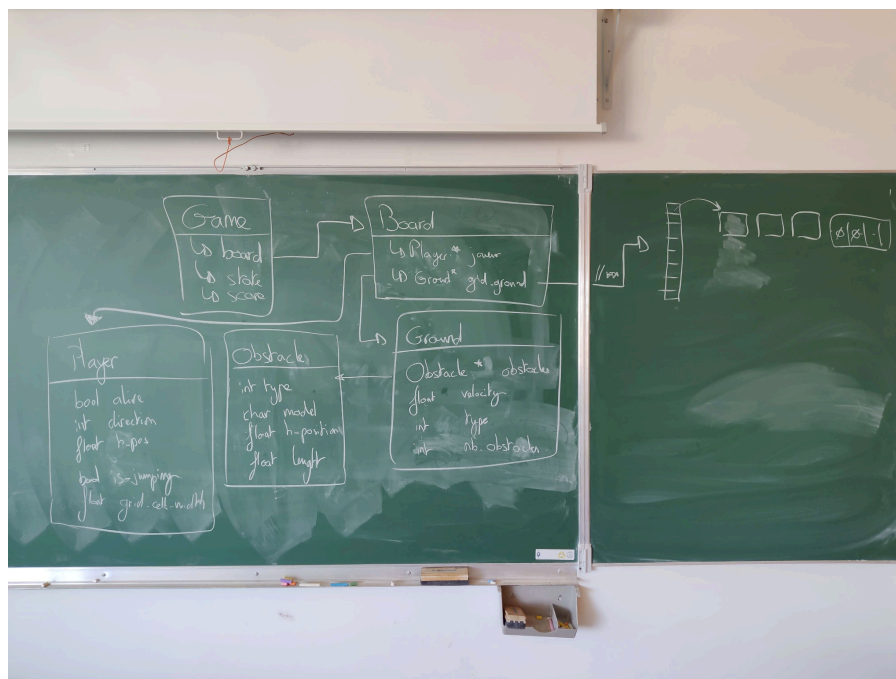 Game
↳ board
↳ state
↳ score
Board
↳ Player * joueur
↳ Ground * grid_ground
Player
bool alive
int direction
float h_pos
bool is_jumping
float grid_cell_width
Obstacle
int type
char model
float h_position
float lenght
Ground
Obstacle * obstacles
float velocity
int type
int nb_obstacles